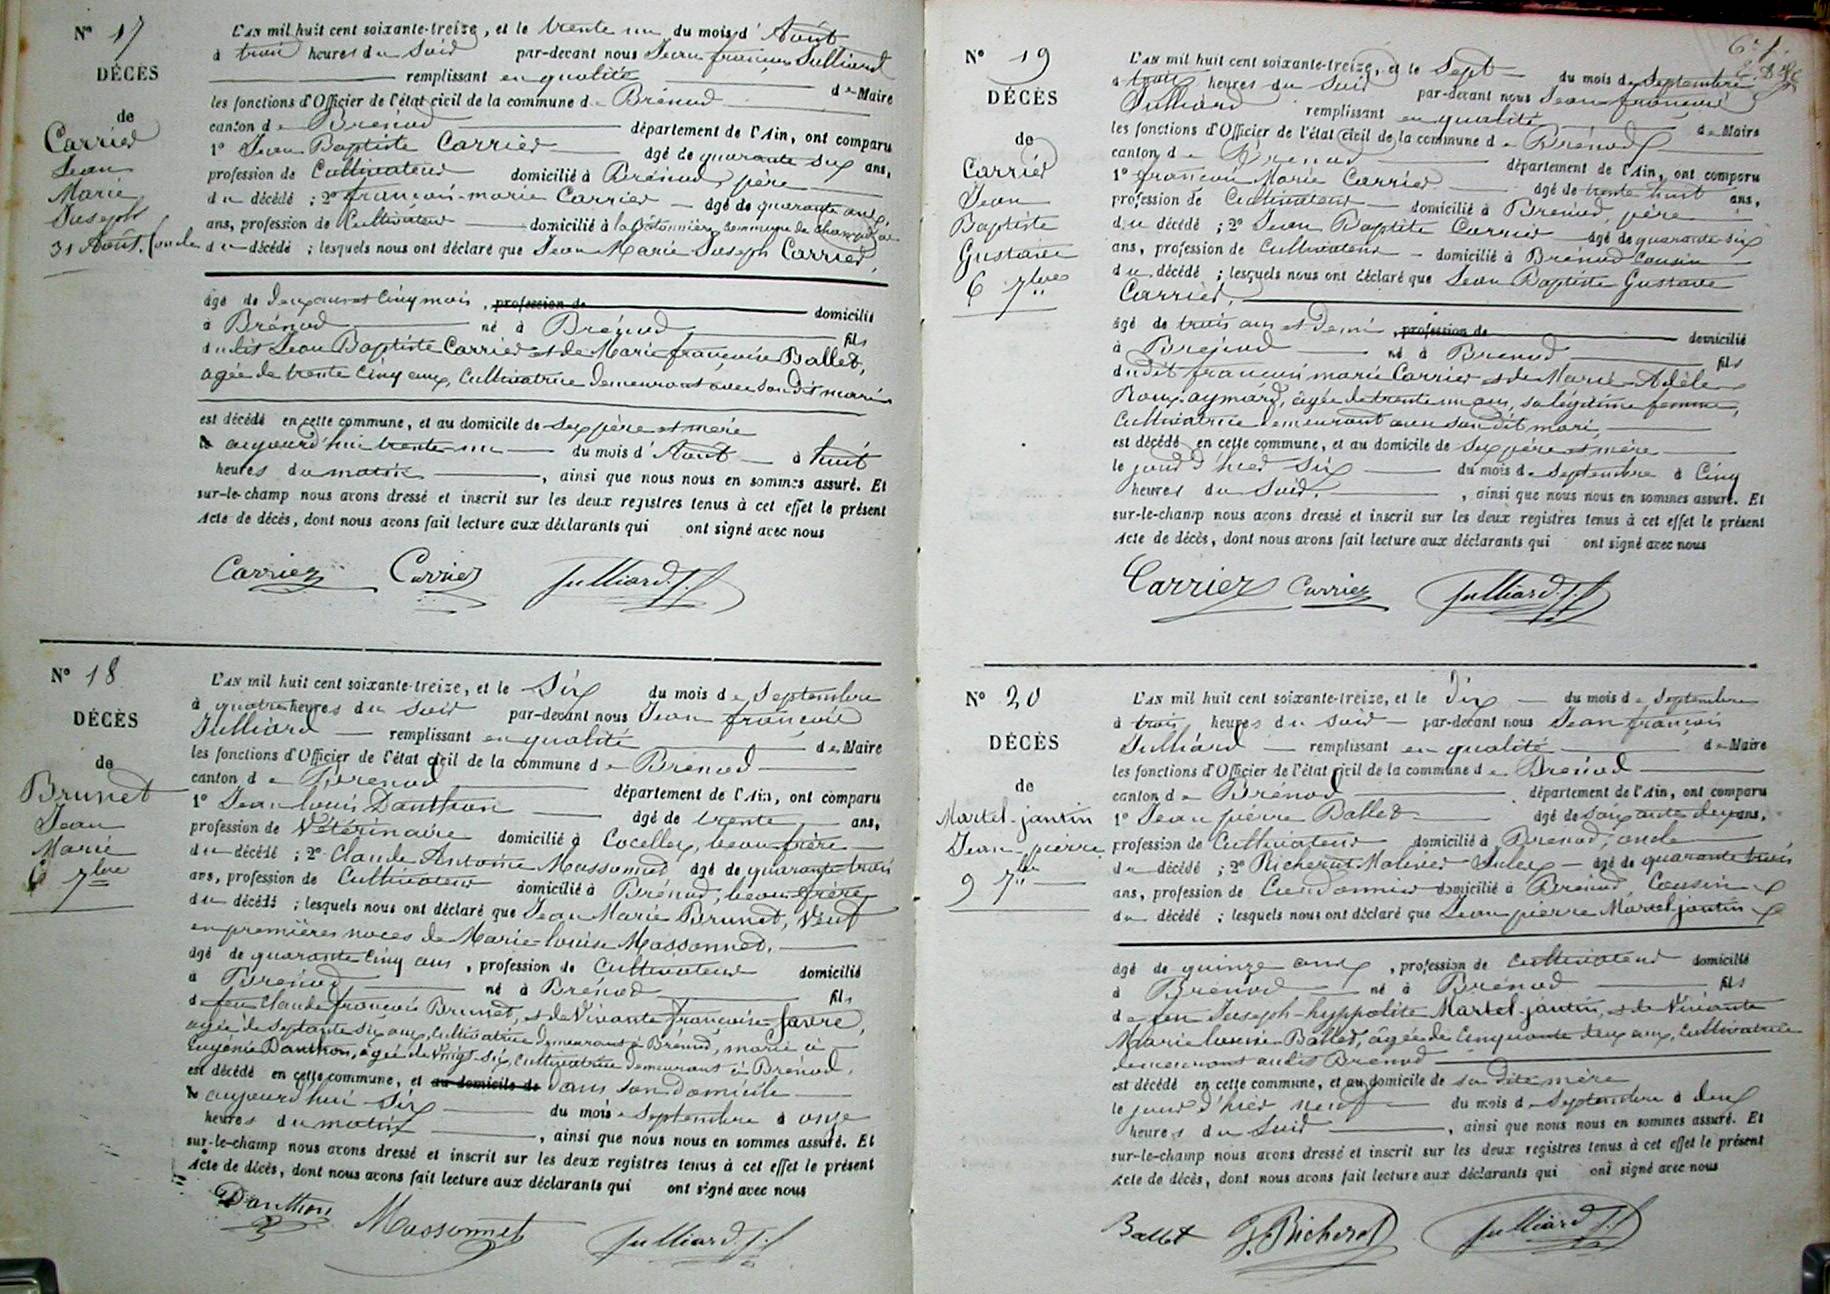 N° 17
DÉCÈS
de
Carrier
Jean
Marie
Joseph
31 Août.
L'AN mil huit cent soixante-treize, et le trente un du mois d'Août
à trois heures du Soir par-devant nous Jean françois Julliard
remplissant en qualité de Maire
les fonctions d'Officier de l'état civil de la commune de Brénod
canton de Brénod département de l'Ain, ont comparu
1° Jean Baptiste Carrier âgé de quarante six ans,
profession de Cultivateur domicilié à Brénod, père
du décédé ; 2° françois-marie Carrier âgé de quarante ans,
ans, profession de Cultivateur domicilié à la commune de
du décédé ; lesquels nous ont déclaré que Jean Marie Joseph Carrier,
âgé de deux ans et Cinq mois, profession de domicilié
à Brénod né à Brénod fils
dudit Jean Baptiste Carrier et de Marie françoise Ballet,
agée de trente Cinq ans, Cultivatrice demeurant avec son dit mari
est décédé en cette commune, et au domicile de ses père et mère
le aujourd'hui trente-un du mois d'Août à huit
heures du matin, ainsi que nous nous en sommes assuré. Et
sur-le-champ nous avons dressé et inscrit sur les deux registres tenus à cet effet le présent
Acte de décès, dont nous avons fait lecture aux déclarants qui ont signé avec nous
Carrier Carrier Julliard J. f
N° 18
DÉCÈS
de
Brunet
Jean
Marie
6 7bre
L'AN mil huit cent soixante-treize, et le Six du mois de Septembre
à quatre heures du Soir par-devant nous Jean françois
Julliard remplissant en qualité de Maire
les fonctions d'Officier de l'état civil de la commune de Brénod
canton de Brenod département de l'Ain, ont comparu
1° Jean louis Danthon âgé de trente ans,
profession de Vétérinaire domicilié à Cocelley, beau frère
du décédé ; 2° Claude Antoine Massonnet âgé de quarante trois
ans, profession de Cultivateur domicilié à Brénod, beau frère
du décédé ; lesquels nous ont déclaré que Jean Marie Brunet, Veuf
en premières noces de Marie-louise Massonnet,
âgé de quarante Cinq ans, profession de Cultivateur domicilié
à Brénod né à Brénod fils
de feu Claude françois Brunet, et de Vivante françoise favre,
agée de septante six ans, Cultivatrice demeurant à Brénod, marié à
Eugénie Danthon, âgée de Vingt-six, Cultivatrice demeurant à Brénod.
est décédé en cette commune, et au domicile de dans son Domicile
le aujourd'hui six du mois de Septembre à onze
heures du matin, ainsi que nous nous en sommes assuré. Et
sur-le-champ nous avons dressé et inscrit sur les deux registres tenus à cet effet le présent
Acte de décès, dont nous avons fait lecture aux déclarants qui ont signé avec nous
Danthon Massonnet Julliard J. f
N° 19
DÉCÈS
de
Carrier
Jean
Baptiste
Gustave
6 7bre
L'AN mil huit cent soixante-treize, et le Sept du mois de Septembre
à heures du Soir par-devant nous Jean françois
Julliard remplissant en qualité de Maire
les fonctions d'Officier de l'état civil de la commune de Brénod
canton de Brénod département de l'Ain, ont comparu
1° françois Marie Carrier âgé de trente huit ans,
profession de Cultivateur domicilié à Brénod, père
du décédé ; 2° Jean Baptiste Carrier âgé de quarante-six
ans, profession de Cultivateur domicilié à Brénod Cousin
du décédé ; lesquels nous ont déclaré que Jean Baptiste Gustave
Carrier,
âgé de trois ans et Demi, profession de domicilié
à Brénod né à Brenod fils
dudit françois marie Carrier et de Marie Adèle
Roux aymard, âgée de trente un ans, sa légitime femme,
Cultivatrice demeurant avec son dit mari,
est décédé en cette commune, et au domicile de ses père et mère
le jour d'hier Six du mois de Septembre à Cinq
heures du Soir, ainsi que nous nous en sommes assuré. Et
sur-le-champ nous avons dressé et inscrit sur les deux registres tenus à cet effet le présent
Acte de décès, dont nous avons fait lecture aux déclarants qui ont signé avec nous
Carrier Carrier Julliard J. f
N° 20
DÉCÈS
de
Martel-jantin
Jean-pierre
9 7bre
L'AN mil huit cent soixante-treize, et le Dix du mois de Septembre
à trois heures du soir par-devant nous Jean françois
Julliard remplissant en qualité de Maire
les fonctions d'Officier de l'état civil de la commune de Brénod
canton de Brénod département de l'Ain, ont comparu
1° Jean pierre Ballet âgé de soixante deux ans,
profession de Cultivateur domicilié à Brenod, oncle
du décédé ; 2° Richerot Jules âgé de quarante trois
ans, profession de Cordonnier domicilié à Brénod, Cousin
du décédé ; lesquels nous ont déclaré que Jean pierre Martel jantin
âgé de quinze ans, profession de Cultivateur domicilié
à Brénod né à Brénod fils
de feu Joseph-hyppolite Martel-jantin, et de Vivante
Marie louise Ballet, âgée de Cinquante deux ans, Cultivatrice
demeurant audit Brénod
est décédé en cette commune, et au domicile de sa dite mère
le jour d'hier neuf du mois de Septembre à deux
heures du Soir, ainsi que nous nous en sommes assuré. Et
sur-le-champ nous avons dressé et inscrit sur les deux registres tenus à cet effet le présent
Acte de décès, dont nous avons fait lecture aux déclarants qui ont signé avec nous
Ballet J. Richerot Julliard J. f